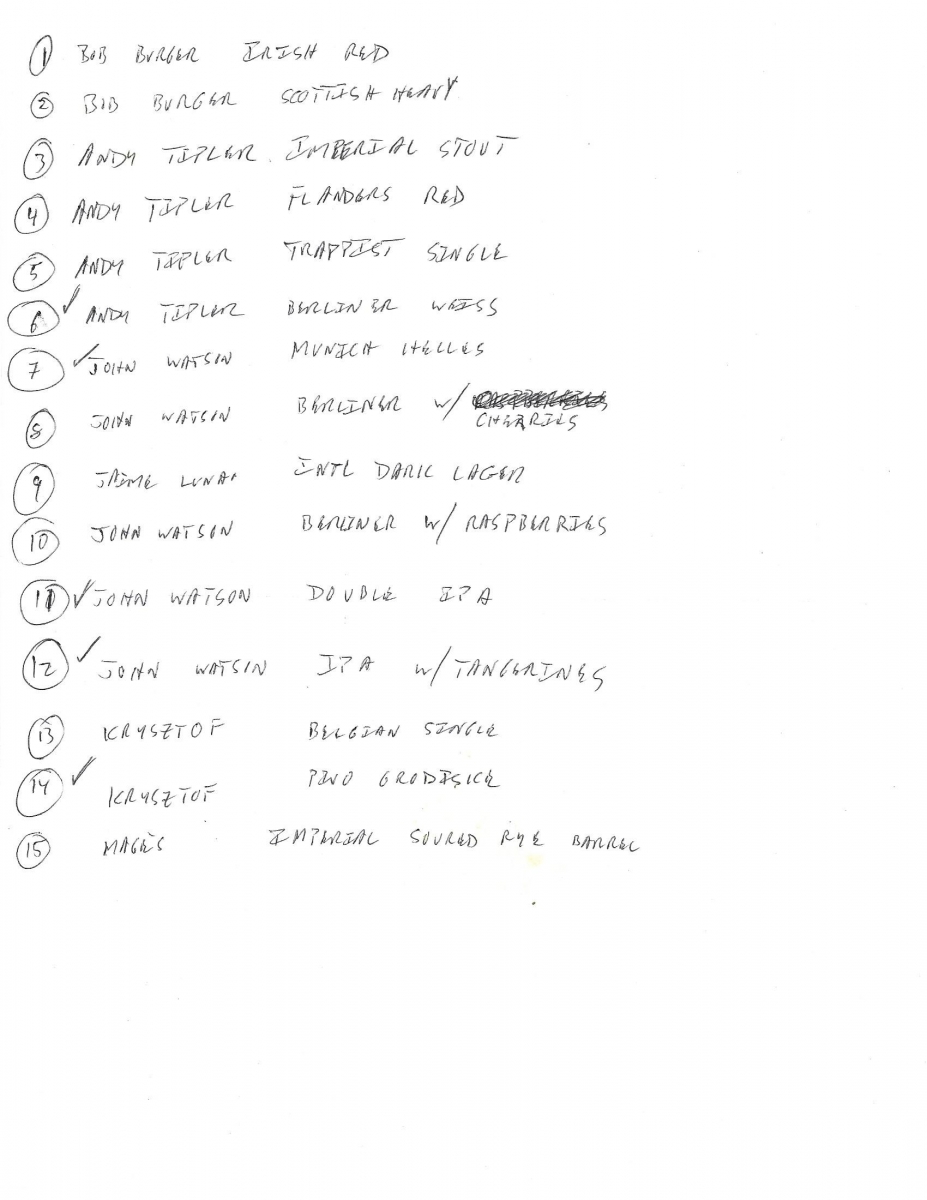 1 BOB BURGER IRISH RED
2 BOB BURGER SCOTTISH HEAVY
3 ANDY TIPLER IMPERIAL STOUT
4 ANDY TIPLER FLANDERS RED
5 ANDY TIPLER TRAPPIST SINGLE
6 ✓ ANDY TIPLER BERLINER WEISS
7 ✓ JOHN WATSON MUNICH HELLES
8 JOHN WATSON BERLINER W/
CHERRIES
9 JAIME LUNA INTL DARK LAGER
10 JOHN WATSON BERLINER W/ RASPBERRIES
11 ✓ JOHN WATSON DOUBLE IPA
12 ✓ JOHN WATSON IPA W/ TANGERINES
13 KRYSZTOF BELGIAN SINGLE
14 ✓ KRYSZTOF PIVO GRODISKE
15 MAGES IMPERIAL SOURED RYE BARREL